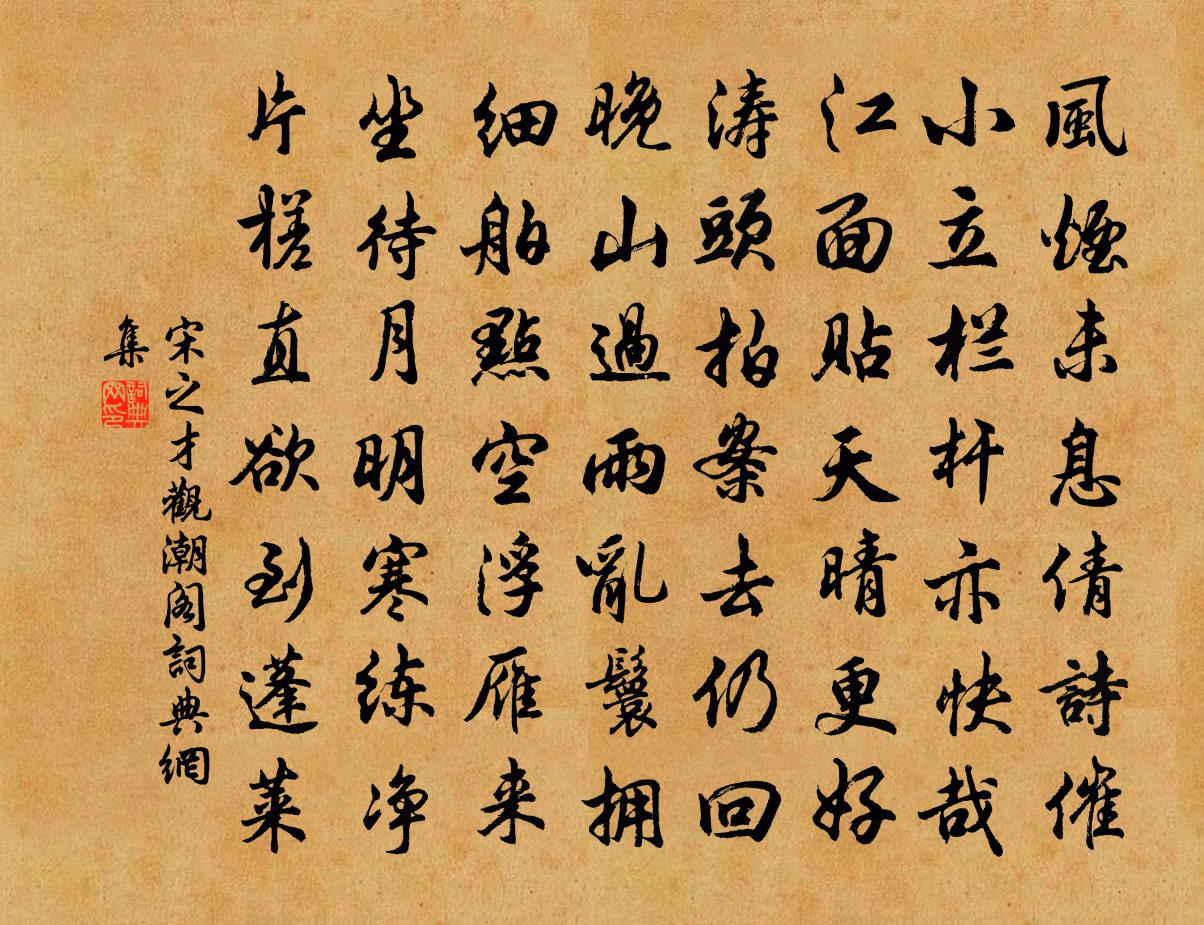 風煙未息倩詩催
小立栏杆亦快哉
江面貼天晴更好
涛頭拍案去仍回
晚山過雨亂鬟拥
細舶點空浮雁来
坐待月明寒练净
片槎直欲到蓬莱
宋之才觀潮阁詞典網
集
詞典
网印